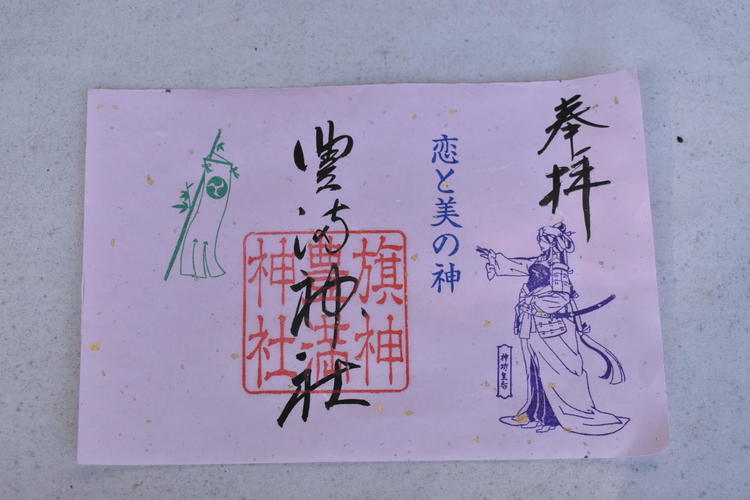 奉拝
神功皇后
恋と美の神
豊満神社
旗神
豊満
神社